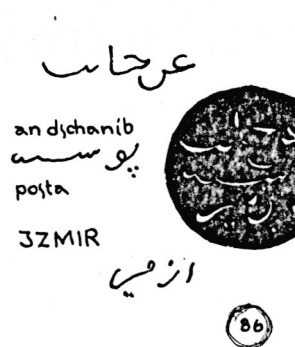 عن جانب
an dschanib
پوسته
posta
JZMIR
ازمير
86